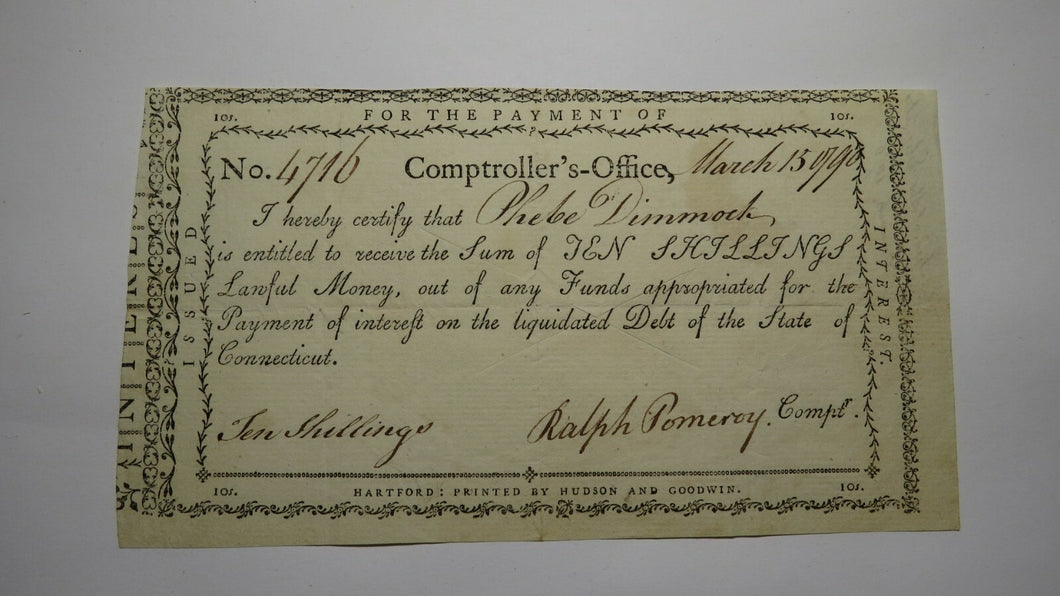 10s. FOR THE PAYMENT OF 10s.
No. 4716 Comptroller's-Office, March 15 1790
I hereby certify that Phebe Dimmock
is entitled to receive the Sum of TEN SHILLINGS
Lawful Money, out of any Funds appropriated for the
Payment of intereſt on the liquidated Debt of the State of
Connecticut.
Ten Shillings Ralph Pomeroy. Comptr.
10s. HARTFORD: PRINTED BY HUDSON AND GOODWIN. 10s.
ISSUED
INTEREST.
INTERES